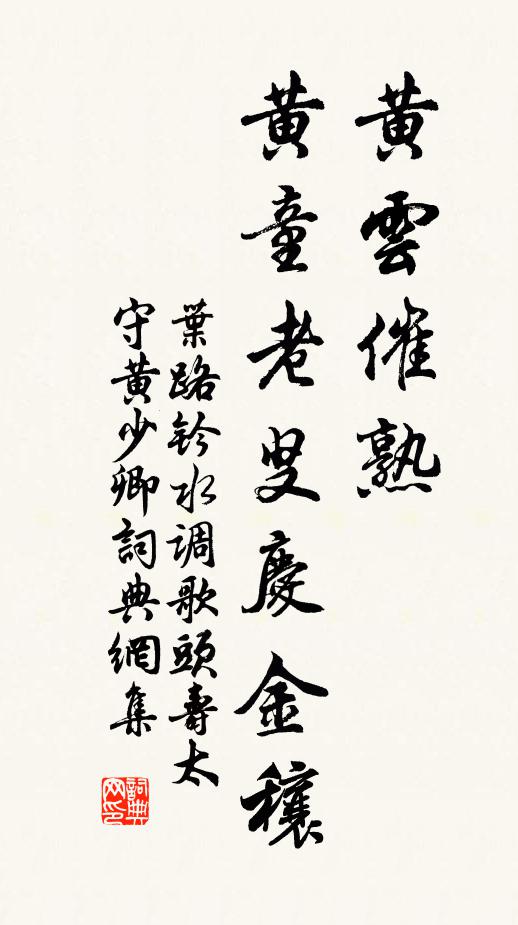 黄雲催熟
黄童老叟慶金穰
葉路鈐水调歌頭壽太
守黄少卿詞典網集
詞典
网印